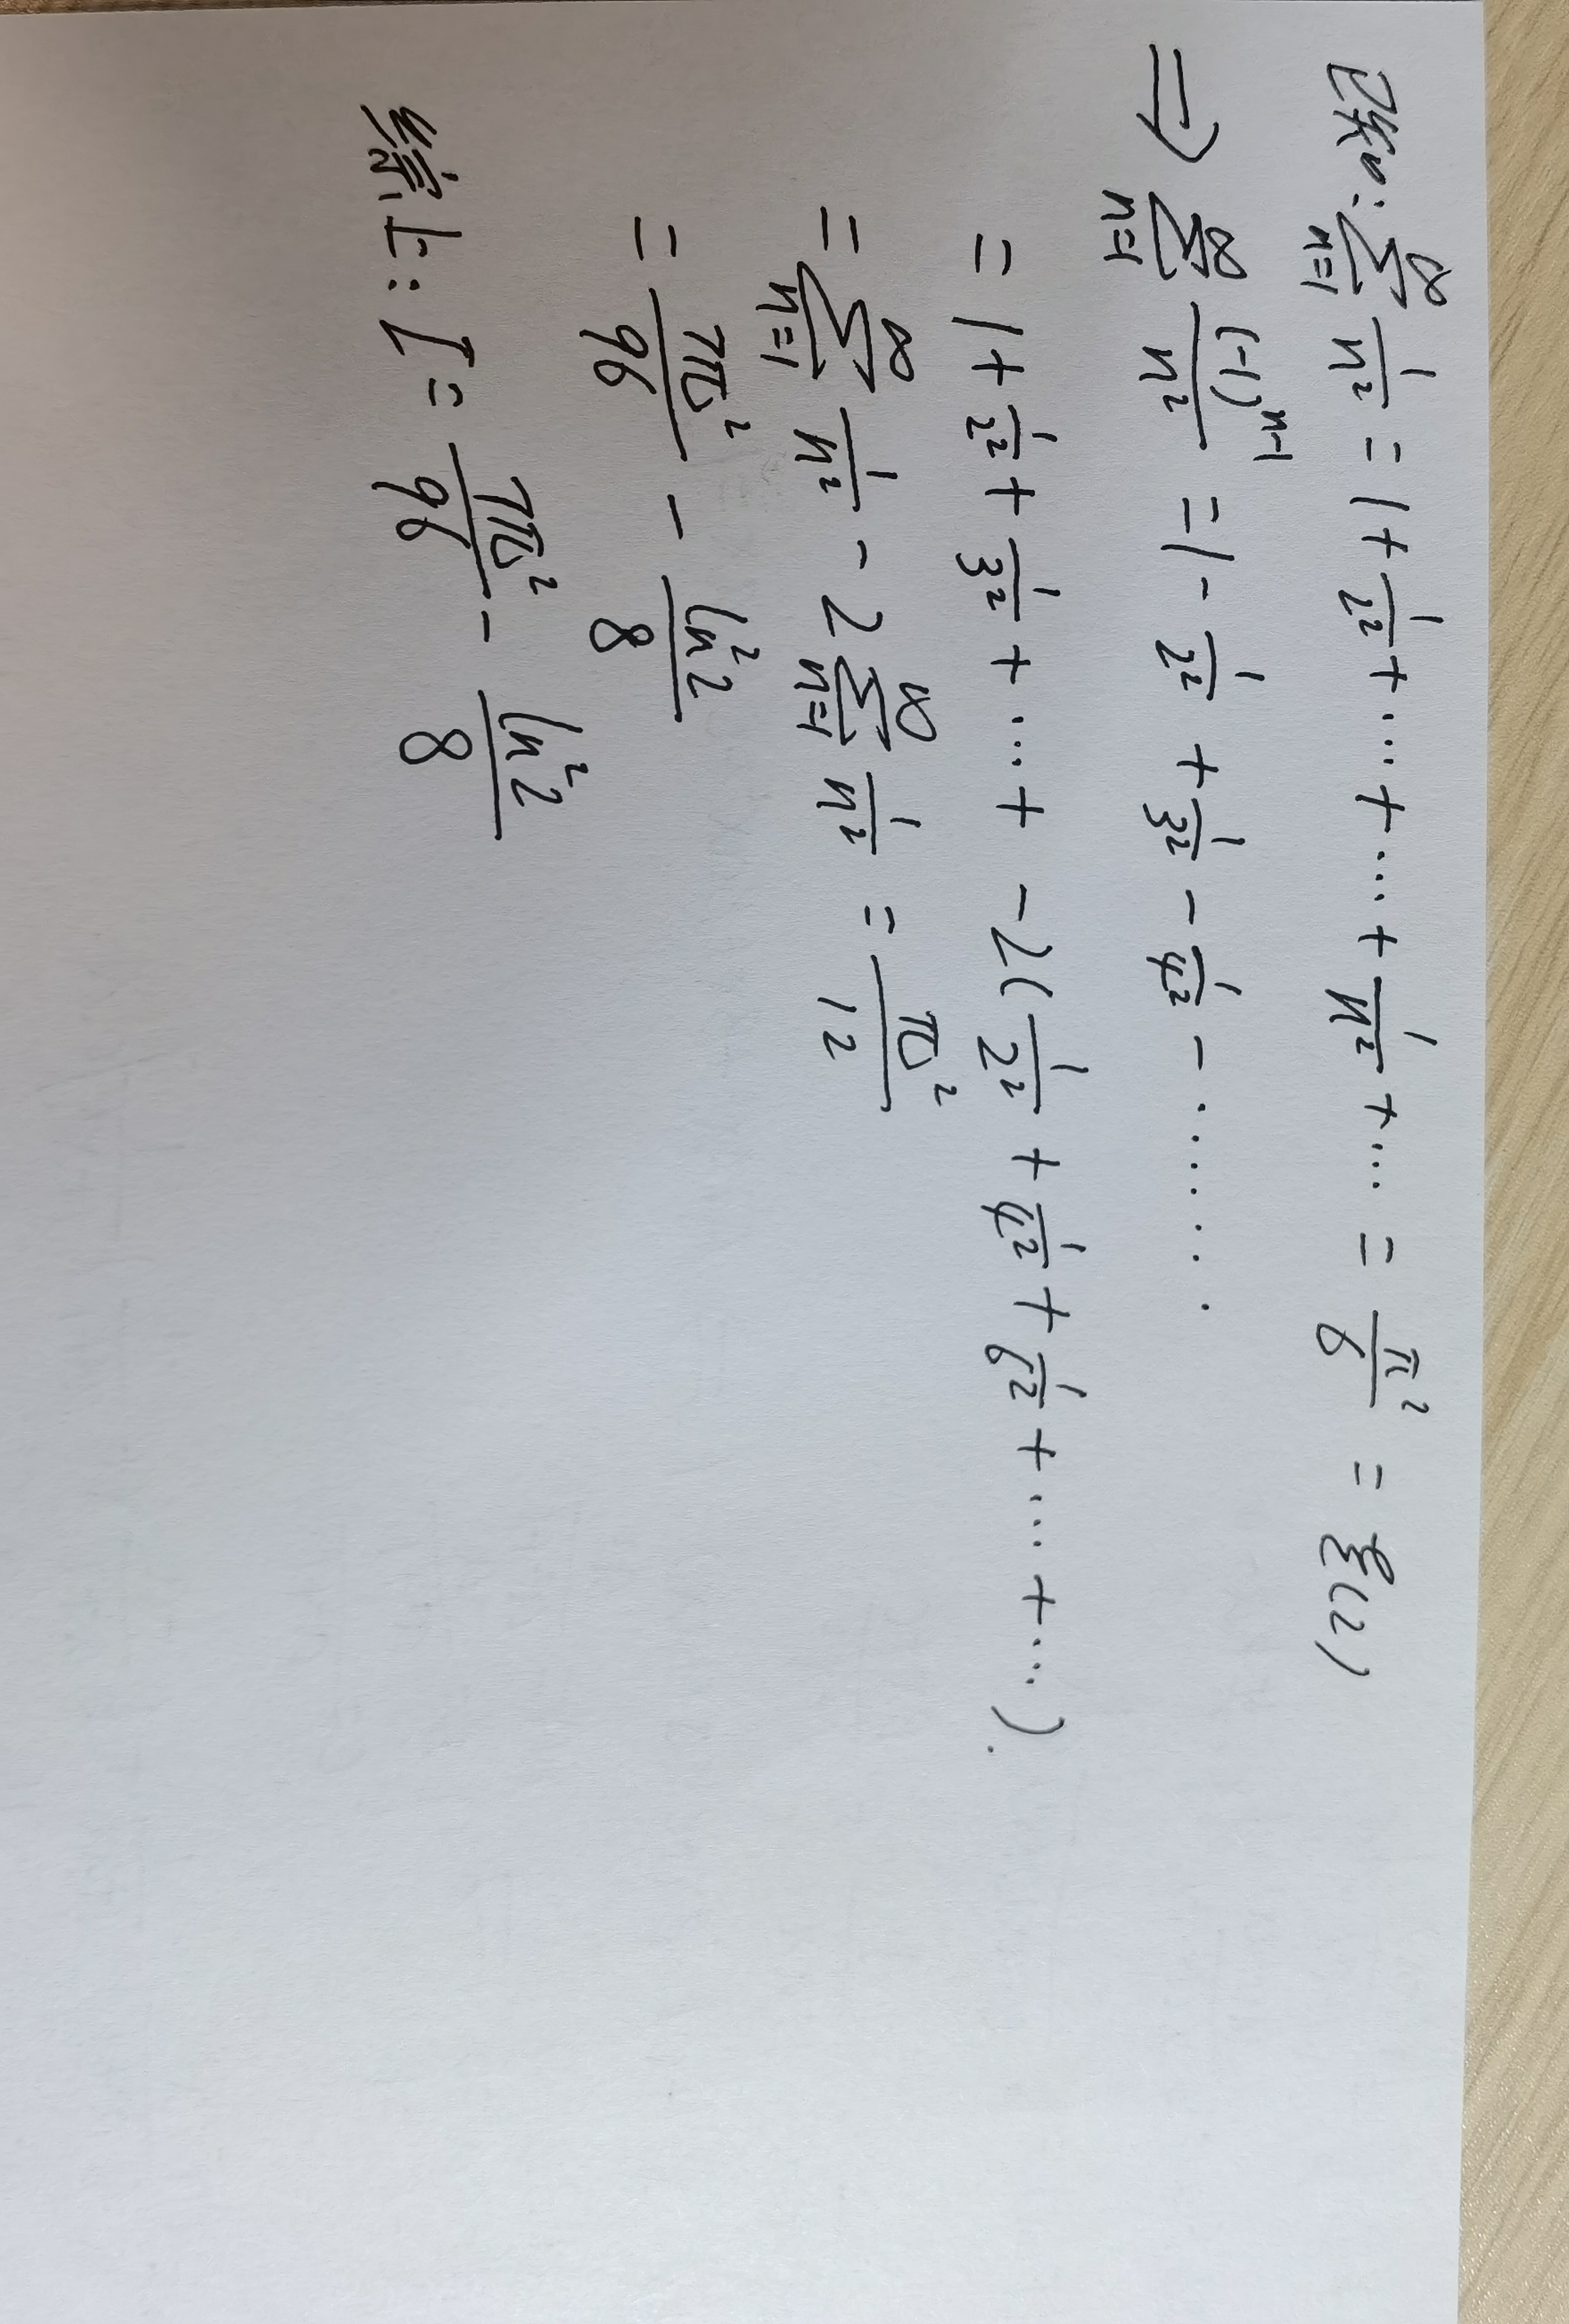 已知: \sum_{n=1}^{\infty} \frac{1}{n^2} = 1 + \frac{1}{2^2} + \cdots + \cdots + \frac{1}{n^2} + \cdots = \frac{\pi^2}{6} = ξ(2)
\Rightarrow \sum_{n=1}^{\infty} \frac{(-1)^{n-1}}{n^2} = 1 - \frac{1}{2^2} + \frac{1}{3^2} - \frac{1}{4^2} - \cdots\cdots
= 1 + \frac{1}{2^2} + \frac{1}{3^2} + \cdots + - 2(\frac{1}{2^2} + \frac{1}{4^2} + \frac{1}{6^2} + \cdots + \cdots).
= \sum_{n=1}^{\infty} \frac{1}{n^2} - 2 \sum_{n=1}^{\infty} \frac{1}{n^2} = \frac{\pi^2}{12}
= \frac{7\pi^2}{96} - \frac{\ln^2 2}{8}
综上: I = \frac{7\pi^2}{96} - \frac{\ln^2 2}{8}